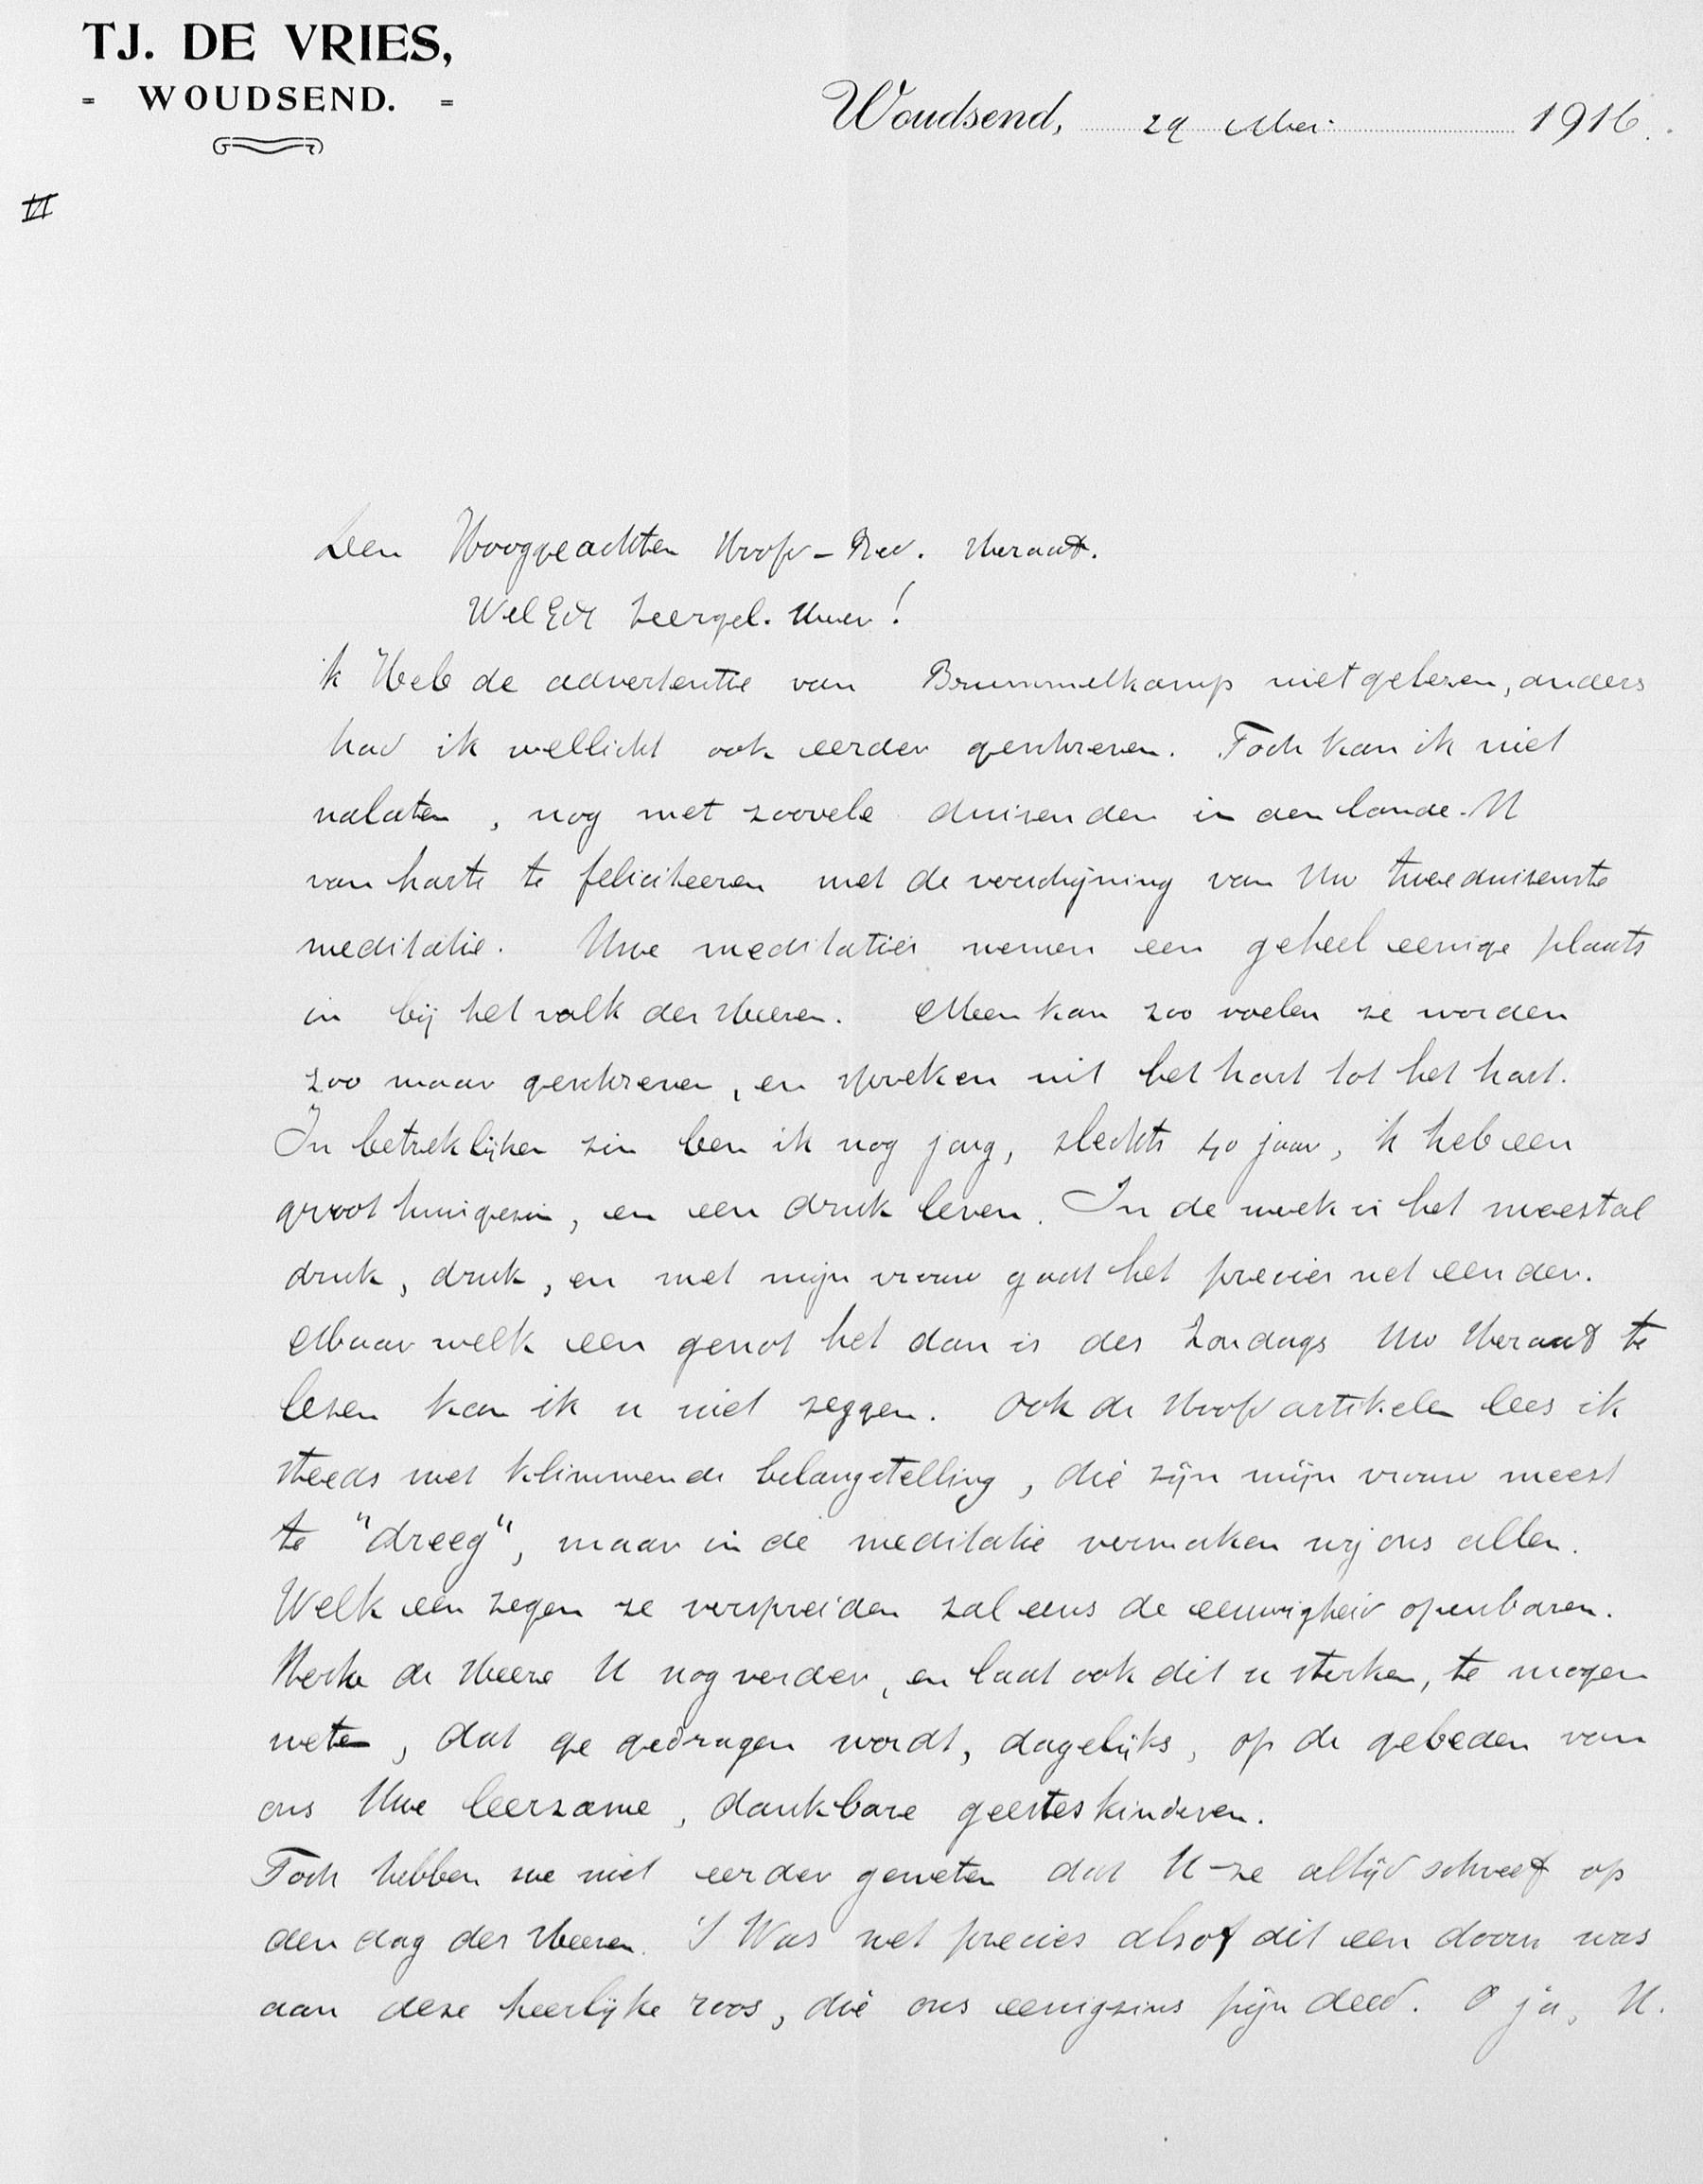 TJ. DE VRIES,
= WOUDSEND. =
Woudsend, 29 Mei 1916.
VI
Den Hooggeachten Hoofd-Red. Heraut.
WelEd Zeergel. Heer!
ik Heb de advertentie van Brummelkamp niet gelezen, anders
had ik wellicht ook eerder geschreven. Toch kan ik niet
nalaten, nog met zoovele duizenden in den lande U
van harte te feliciteeren met de verschijning van Uw tweeduizenste
meditatie. Uwe meditaties nemen een geheel eenige plaats
in bij het volk des Heeren. Men kan zoo voelen ze worden
zoo maar geschreven, en spreken uit het hart tot het hart.
In betreklijken zin ben ik nog jong, slechts 40 jaar, ik heb een
groot huisgezin, en een druk leven. In de week is het meestal
druk, druk, en met mijn vrouw gaat het precies net eender.
Maar welk een genot het dan is des Zondags Uw Heraut te
lezen kan ik u niet zeggen. Ook de Hoofdartikelen lees ik
steeds met klimmende belangstelling, die zijn mijn vrouw meest
te "dreeg", maar in de meditatie vermaken wij ons allen.
Welk een zegen ze verspreiden zal eens de eeuwigheid openbaren.
Sterke de Heere U nog verder, en laat ook dit u sterken, te mogen
weten, dat ge gedragen wordt, dagelijks, op de gebeden van
ons Uwe leerzame, dankbare geesteskinderen.
Toch hebben we niet eerder geweten dat U ze altijd schreef op
den dag des Heeren. 't Was net precies alsof dit een doorn was
aan deze heerlijke roos, die ons eenigzins pijn deed. O ja, U.